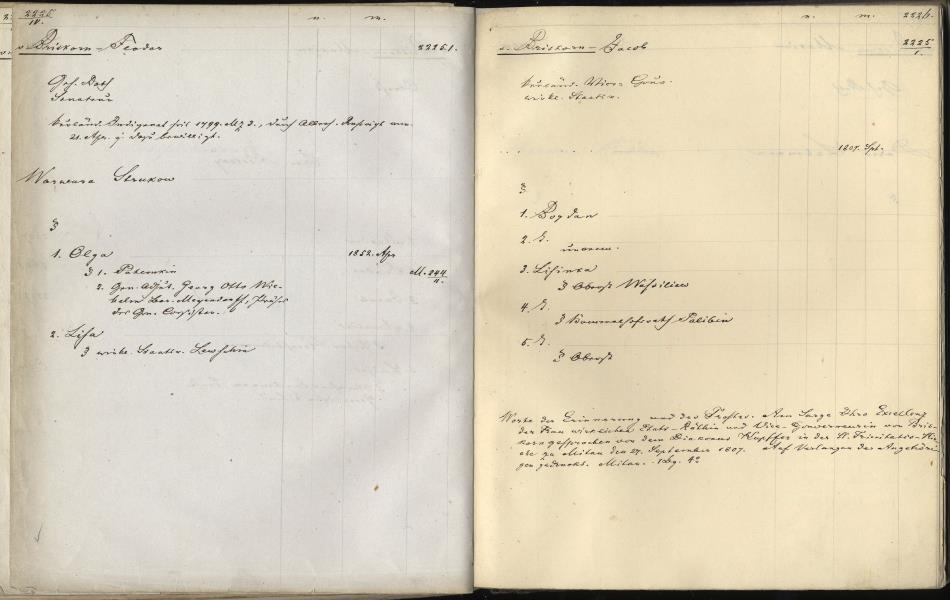 2225
IV.
n. m.
v. Briskorn – Feodor 2225 I.
Geh. Rath
Senateur
Kurländ. Indigenat seit 1799. Mz 3., durch
21. Apr. bewilligt.
Warwara Strukow
1. Olga 1852. Apr
1. Potemkin M. 244
II.
2. Gen. Adjut. Georg Otto Wil-
helm Bar. Meyendorff, Präses
des Gen. Consistor.
2. Lisa
wirkl. Staatsr. Lewschin
n. m. 2226.
v. Briskorn – Jacob 2225
I.
Kurländ. Vice-Gouv.
wirkl. Staatsr.
1807. Spt.
1. Bogdan
2.
unverm.
3. Lisinka
Oberst Wassiliew
4.
Kammerhofrath Palibin
5.
Oberst
Worte der Erinnerung und des Trostes. Am Sarge Ihro Excellenz
der Frau wirklichen Etats-Räthin und Vice-Gouverneurin von Bris-
korn gesprochen von dem Diakonus Kupffer in der St. Trinitatis-Kir-
che zu Mitau den 27. September 1807. Auf Verlangen der Angehöri-
gen gedruckt. Mitau. 1 Bg. 4°